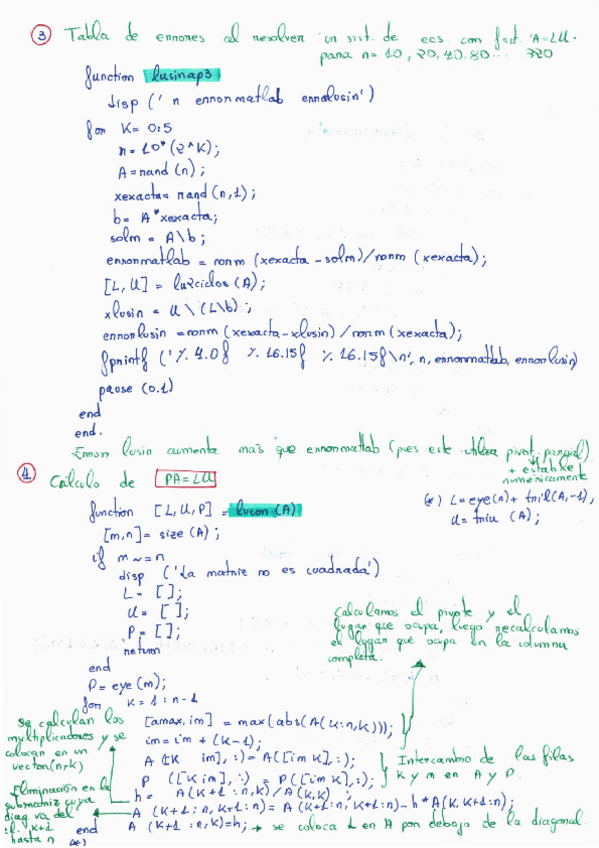 ③ Tabla de errores al resolver un sist. de ecs. con fact. A=LU.
para n= 10, 20, 40, 80 ... 320
function lusinap3
disp (' n errormatlab errorlusin')
for K= 0:5
n= 10*(2^K);
A= rand (n);
xexacta= rand (n,1);
b= A*xexacta;
solm = A\b;
errormatlab = norm (xexacta - solm)/norm (xexacta);
[L, U] = lu2ciclos (A);
xlusin = U \ (L\b);
errorlusin = norm (xexacta-xlusin) / norm (xexacta);
fprintf ('%4.0f %16.15f %16.15f\n', n, errormatlab, errorlusin)
pause (0.1)
end
end.
Error lusin aumenta más que errormatlab (pues este utiliza pivot. parcial)
+ estable
numéricamente
④ Cálculo de PA=LU
(*) L=eye(n)+ tril(A,-1),
U= triu (A);
function [L,U,P] = lucon (A)
[m,n]= size (A);
if m ~= n
disp ('La matriz no es cuadrada')
L= [ ];
U= [ ];
P= [ ];
return
end
Calculamos el pivote y el
lugar que ocupa, luego recalculamos
el lugar que ocupa en la columna
completa.
P= eye (m);
for K = 1 : n-1
[amax, im] = max(abs(A(K:n,K)));
im= im + (K-1);
A ([K im], :) = A([im K],:);
P ([K im], :) = P([im K],:);
Intercambio de las filas
K y m en A y P.
h= A(K+1:n,K) / A(K,K);
A (K+1:n, K+1:n)= A (K+1:n, K+1:n)-h*A(K,K+1:n);
A (K+1:n,K)=h; → se coloca L en A por debajo de la diagonal.
end
(*)
Se calculan los
multiplicadores y se
colocan en un
vector(n-k)
Eliminación en la
submatriz cuya
diag. va del
K+1
hasta n